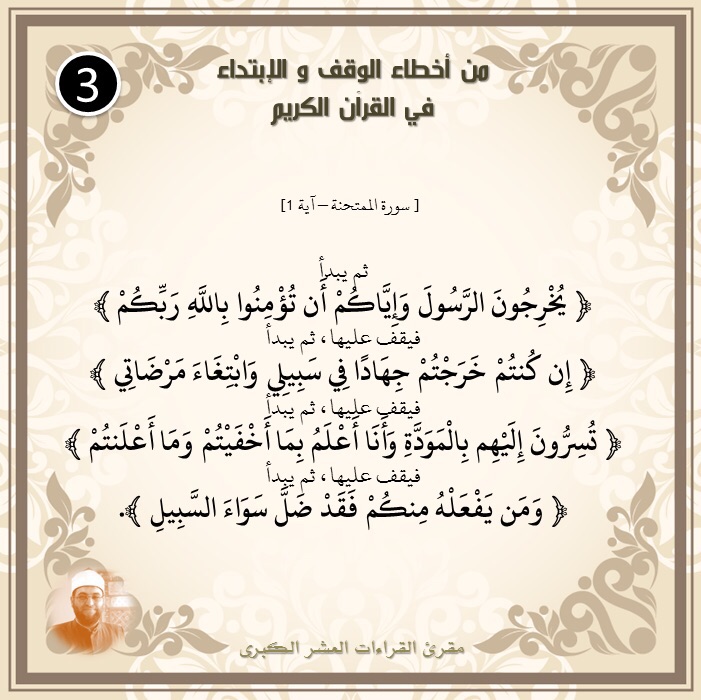 3
من أخطاء الوقف و الإبتداء
في القرآن الكريم
[ سورة الممتحنة – آية 1]
ثم يبدأ
﴿ يُخْرِجُونَ الرَّسُولَ وَإِيَّاكُمْ أَن تُؤْمِنُوا بِاللَّهِ رَبِّكُمْ ﴾
فيقف عليها، ثم يبدأ
﴿ إِن كُنتُمْ خَرَجْتُمْ جِهَادًا فِي سَبِيلِي وَابْتِغَاءَ مَرْضَاتِي ﴾
فيقف عليها، ثم يبدأ
﴿ تُسِرُّونَ إِلَيْهِم بِالْمَوَدَّةِ وَأَنَا أَعْلَمُ بِمَا أَخْفَيْتُمْ وَمَا أَعْلَنتُمْ ﴾
فيقف عليها، ثم يبدأ
﴿ وَمَن يَفْعَلْهُ مِنكُمْ فَقَدْ ضَلَّ سَوَاءَ السَّبِيلِ ﴾.
مقرئ القراءات العشر الكبرى